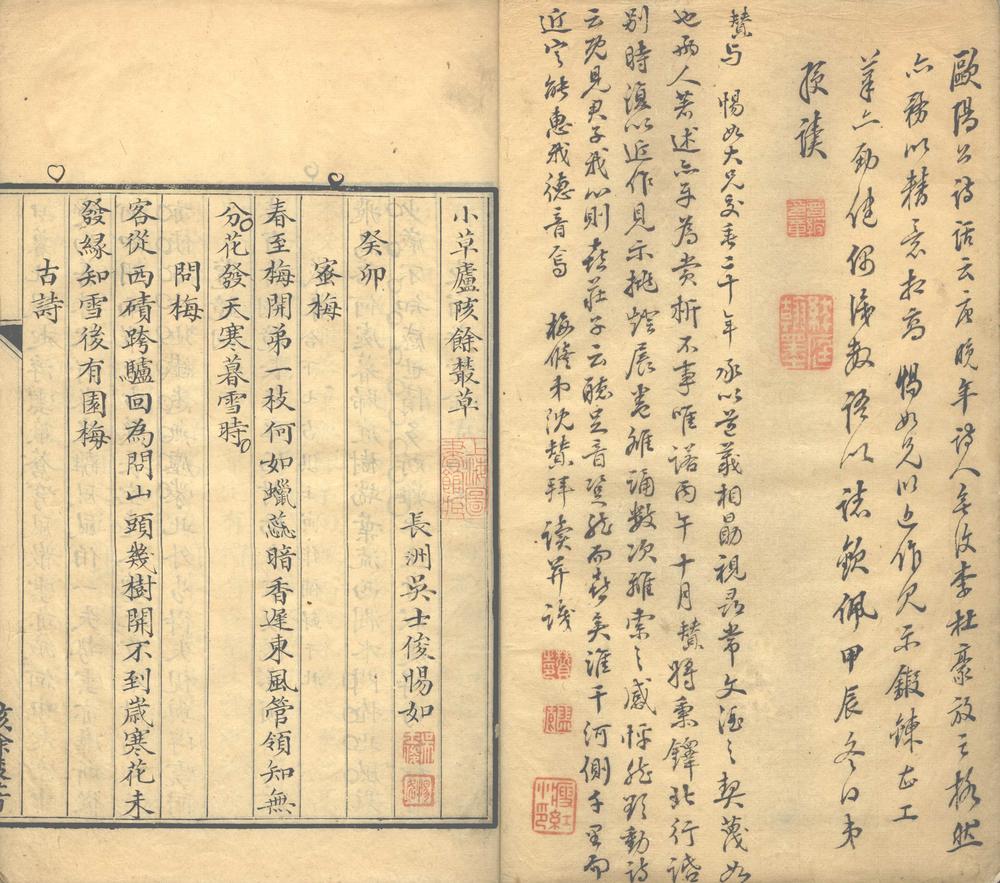 歐陽公詩話云唐晚年詩人無復李杜豪放之格然
亦務以精意相高 惕如兄以近作見示鍛鍊甚工
筆亦勁健偶識數語以誌欽佩甲辰冬日弟
讀
贊與 惕如大兄交垂二十年承以道義相勗視尋常文酒之契蔑如
也兩人著述亦互為賞析不事唯諾丙午十月贊將秉鐸北行話
別時復以近作見示挑燈展卷雒誦數次離索之感怦然欲動詩
云既見君子我心則喜莊子云聽足音跫然而喜矣誰干河側千里而
近定能惠我德音焉 梅脩弟沈贊拜讀并識
瘦紅小印
小草廬陔餘叢草
上海圖書館藏
長洲吳士俊惕如
癸卯
蜜梅
春至梅開弟一枝何如蠟蕊暗香遲東風管領知無
分花發天寒暮雪時
問梅
客從西磧跨驢回為問山頭幾樹開不到歲寒花未
發緣知雪後有園梅
古詩
陔餘叢草